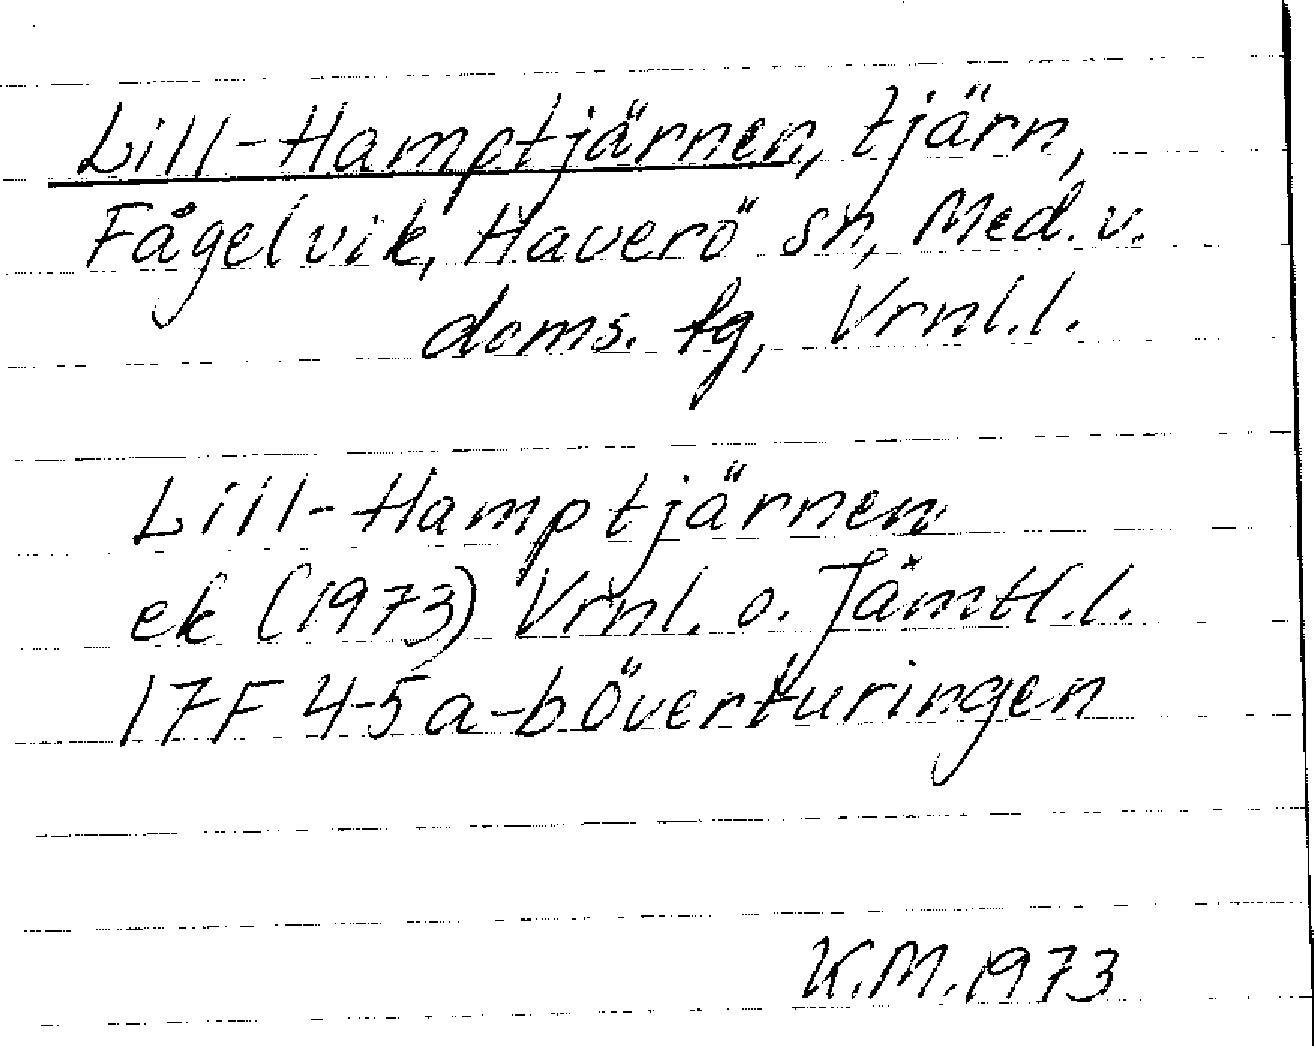 Lill-Hamptjärnen, tjärn,
Fågelvik, Haverö sn, Med. v.
doms. fg, Vrnl.l.
Lill-Hamptjärnen
ek (1973) Vrnl. o. Jämtl.l.
17F 4-5a-b Överturingen
K.M. 1973